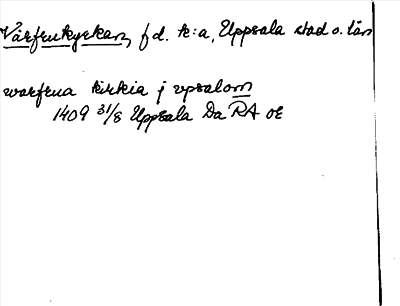 Vårfrukyrkan, f d. k:a, Uppsala stad o. län
warfrua kirkia j vpsalom
1409 31/8 Uppsala Da RA oE